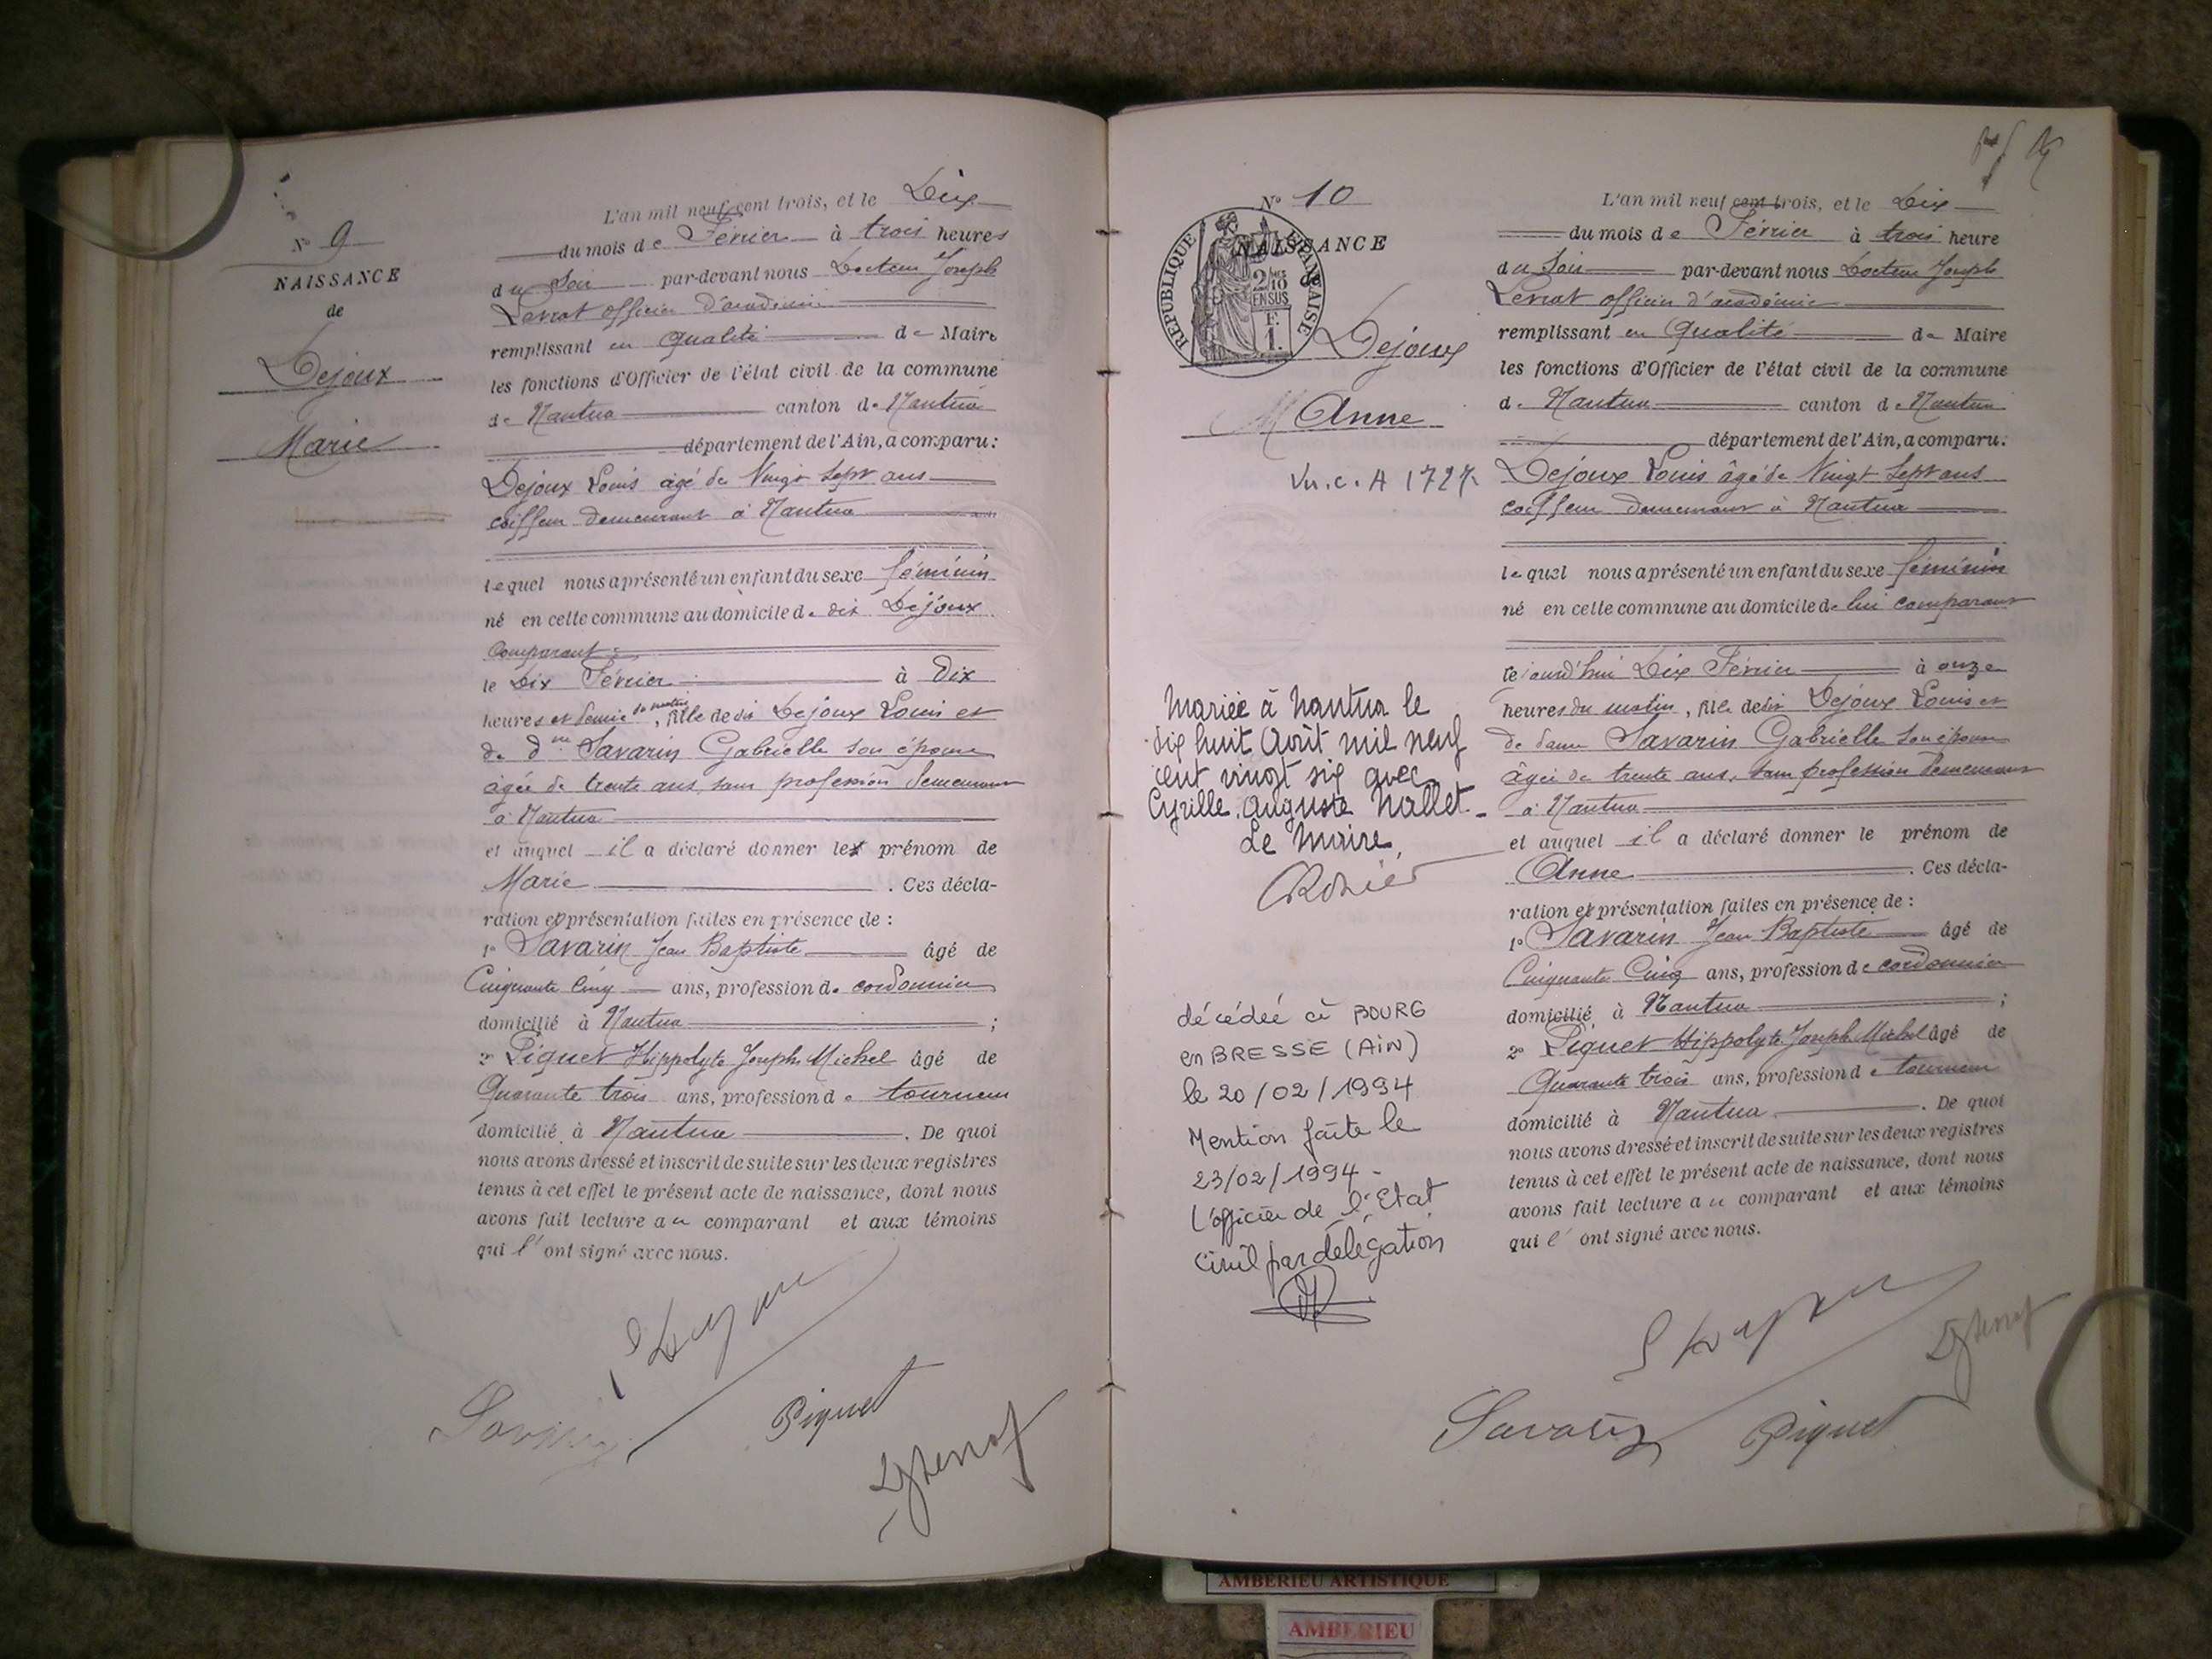 N° 9
NAISSANCE
de
Dejoux
Marie
L'an mil neuf cent trois, et le Dix
du mois de Février à trois heures
du Soir par-devant nous Docteur Joseph
Levrat officier d'académie
remplissant en qualité de Maire
les fonctions d'Officier de l'état civil de la commune
de Nantua canton de Nantua
département de l'Ain, a comparu:
Dejoux Louis âgé de Vingt Sept ans
coiffeur demeurant à Nantua
lequel nous a présenté un enfant du sexe féminin
né en cette commune au domicile de dit Dejoux
Comparant
le Dix Février à Dix
heures et demie du matin, fille de dit Dejoux Louis et
de dme Savarin Gabrielle son épouse
âgée de trente ans, sans profession demeurant
à Nantua
et auquel il a déclaré donner les prénom de
Marie . Ces décla-
ration et présentation faites en présence de :
1° Savarin Jean Baptiste âgé de
Cinquante Cinq ans, profession de cordonnier
domicilié à Nantua ;
2° Piquet Hippolyte Joseph Michel âgé de
Quarante trois ans, profession de tourneur
domicilié à Nantua . De quoi
nous avons dressé et inscrit de suite sur les deux registres
tenus à cet effet le présent acte de naissance, dont nous
avons fait lecture au comparant et aux témoins
qui l'ont signé avec nous.
Savarin
Piquet
N° 10
NAISSANCE
de
REPUBLIQUE FRANÇAISE
2/10 EN SUS
F.
1.
Dejoux
Anne
Mariée à Nantua le
dix huit Août mil neuf
cent vingt six avec
Cyrille Auguste Nallet.
Le Maire,
décédée à BOURG
en BRESSE (AIN)
le 20/02/1994
Mention faite le
23/02/1994 -
L'officier de l'Etat
Civil par délégation
L'an mil neuf cent trois, et le Dix
du mois de Février à trois heure
du Soir par-devant nous Docteur Joseph
Levrat officier d'académie
remplissant en qualité de Maire
les fonctions d'Officier de l'état civil de la commune
de Nantua canton de Nantua
département de l'Ain, a comparu.
Dejoux Louis âgé de Vingt Sept ans
coiffeur demeurant à Nantua
lequel nous a présenté un enfant du sexe féminin
né en cette commune au domicile de lui comparant
le jourd'hui Dix Février à onze
heures du matin, fille de dit Dejoux Louis et
de dame Savarin Gabrielle son épouse
âgée de trente ans, sans profession demeurant
à Nantua
et auquel il a déclaré donner le prénom de
Anne . Ces décla-
ration et présentation faites en présence de :
1° Savarin Jean Baptiste âgé de
Cinquante Cinq ans, profession de cordonnier
domicilié à Nantua ;
2° Piquet Hippolyte Joseph Michel âgé de
Quarante trois ans, profession de tourneur
domicilié à Nantua . De quoi
nous avons dressé et inscrit de suite sur les deux registres
tenus à cet effet le présent acte de naissance, dont nous
avons fait lecture au comparant et aux témoins
qui l'ont signé avec nous.
Savarin
Piquet
AMBERIEU ARTISTIQUE
AMBERIEU